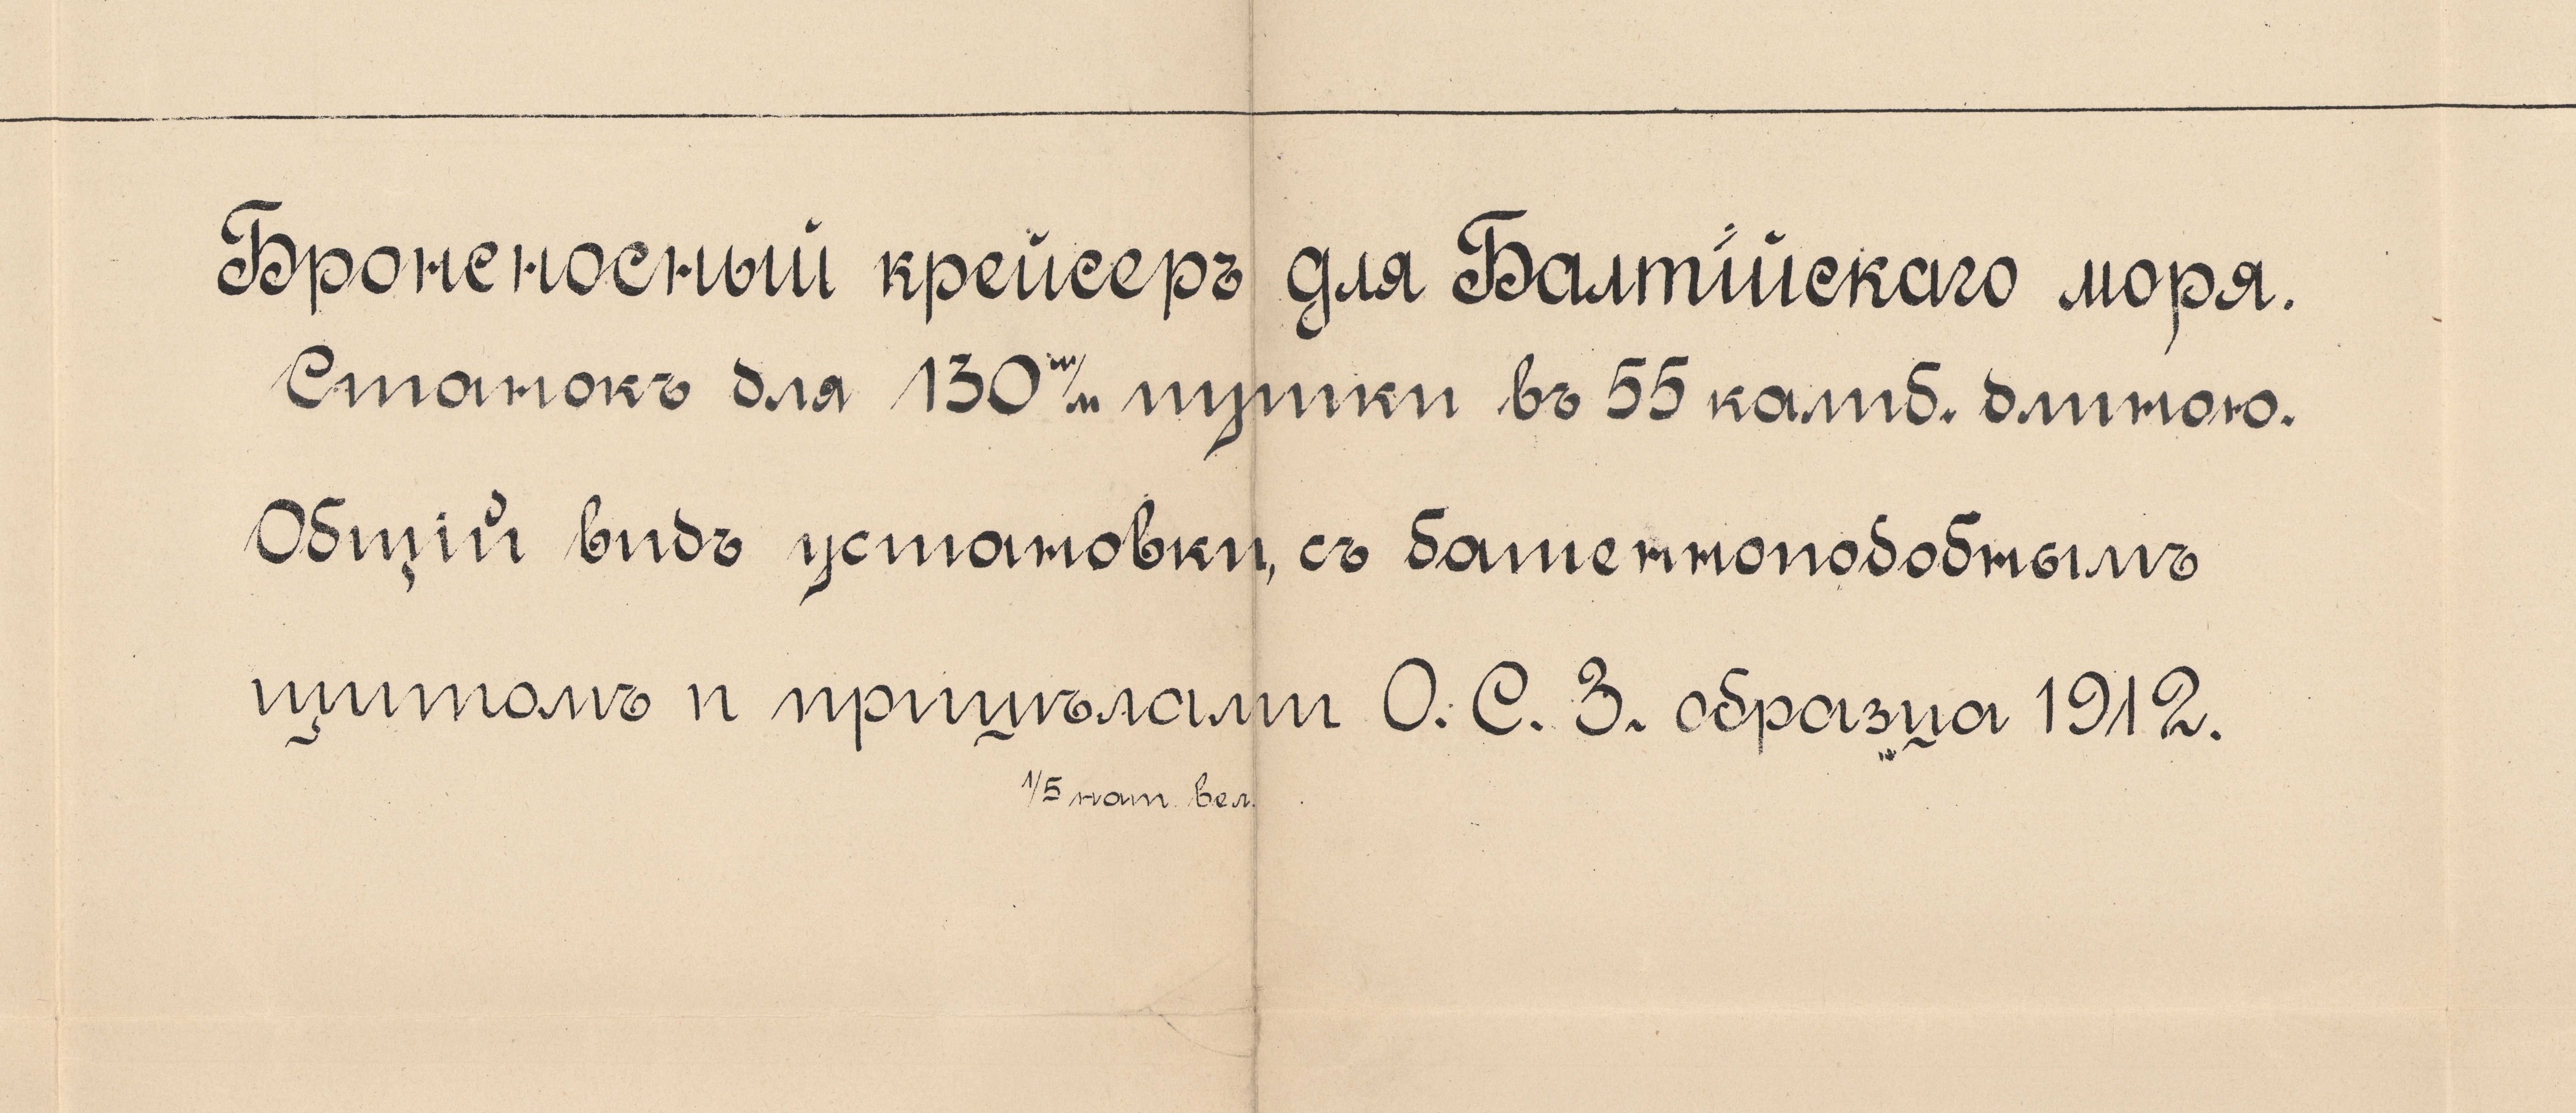 Броненосный крейсеръ для Балтійскаго моря.
Станокъ для 130 м/м пушки въ 55 калиб. длиною.
Общій видъ установки, съ башенноподобнымъ
щитомъ и прицѣлами О. С. З. образца 1912.
1/5 нат. вел.